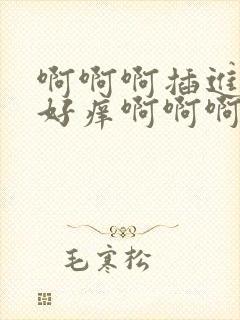 啊啊啊插进
好痒啊啊啊
毛寒松